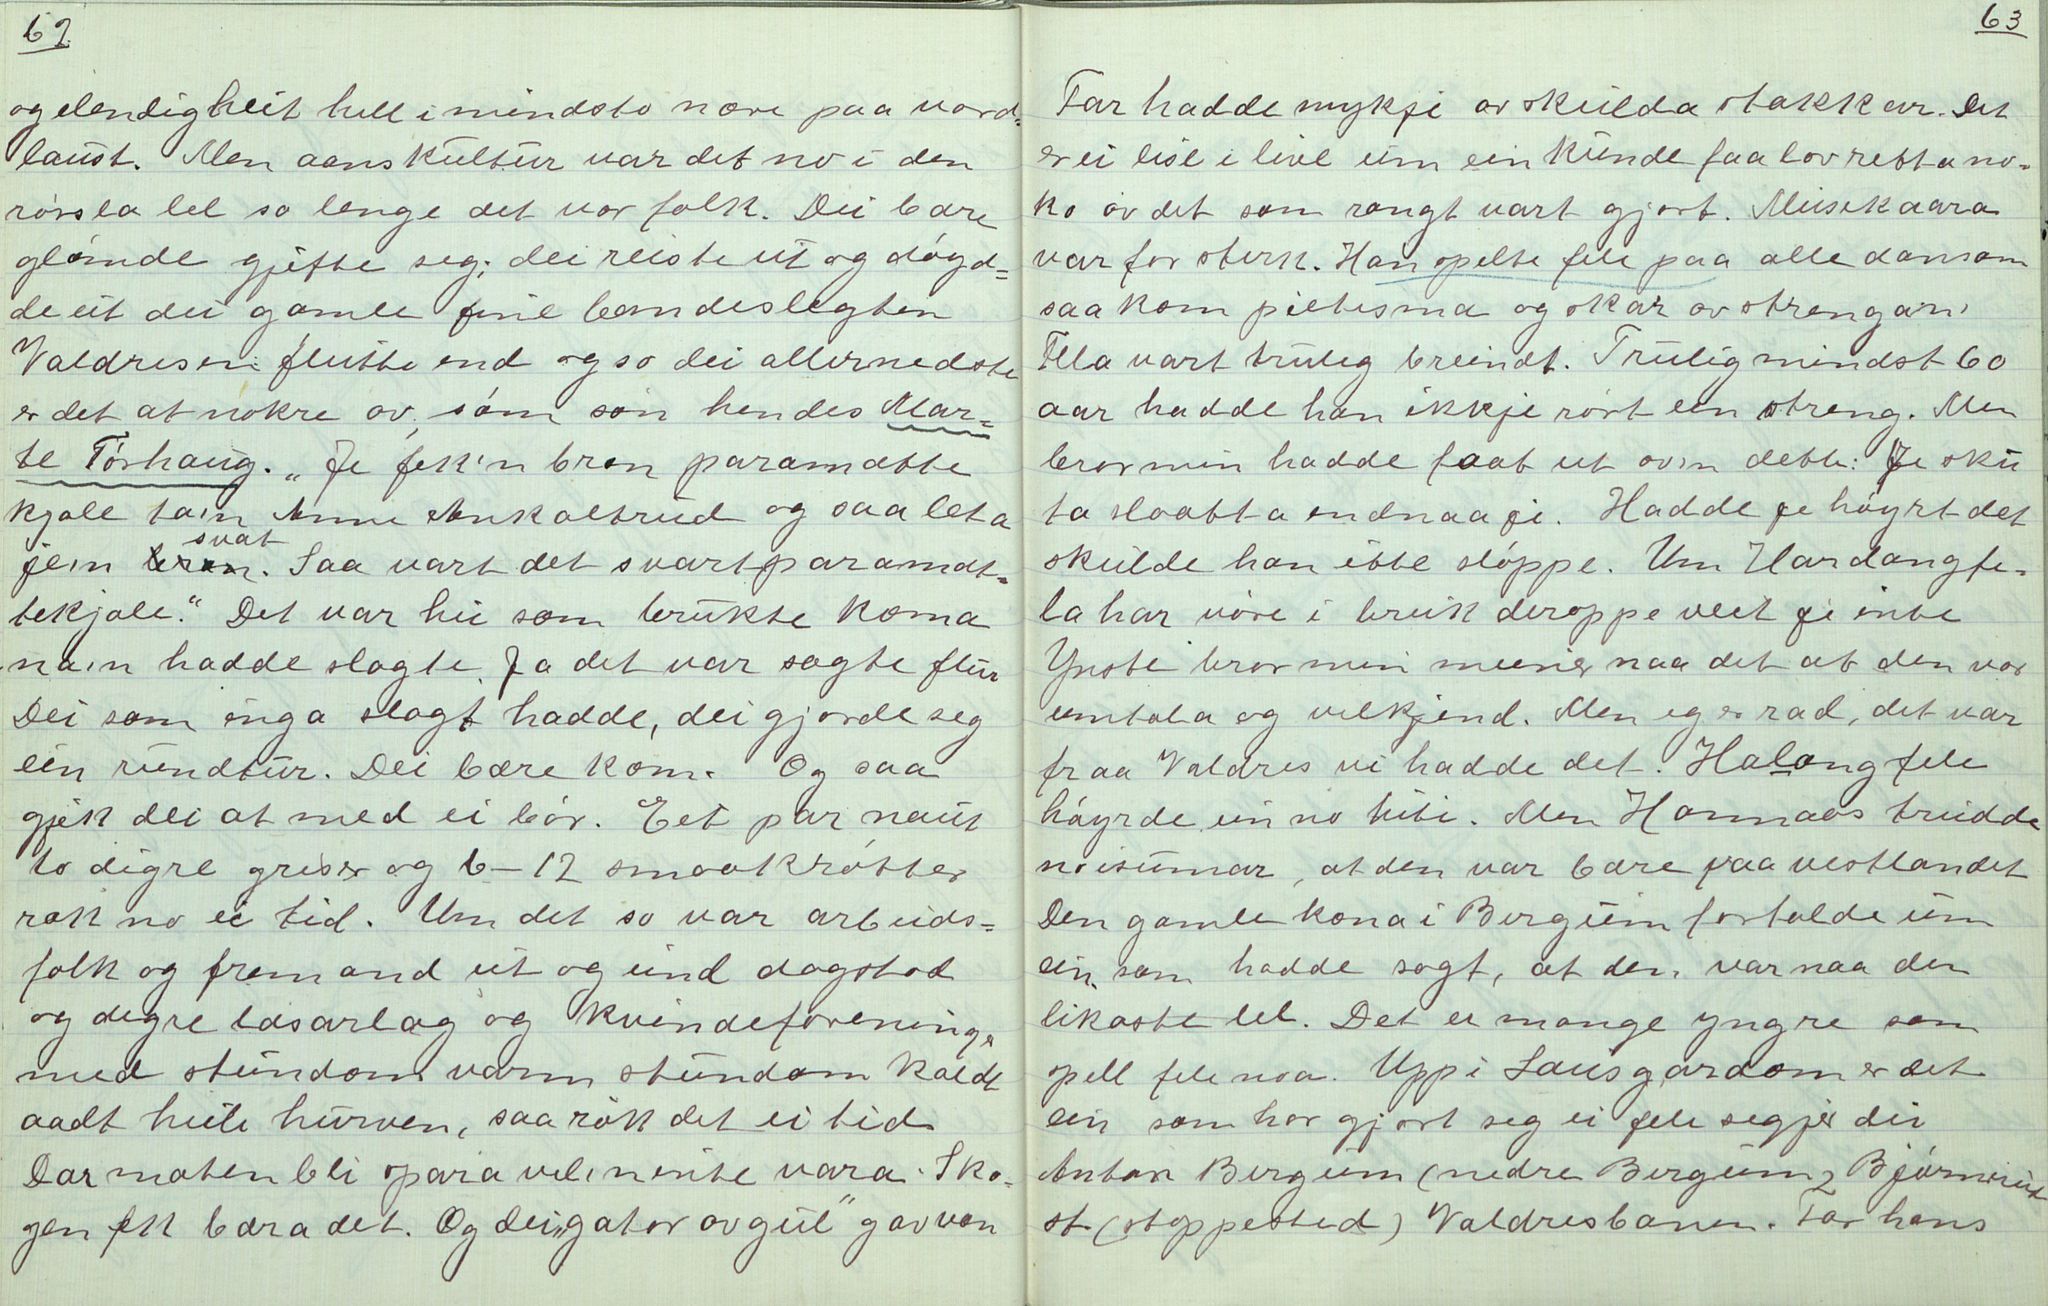 62
og elendigheit hell i mindsto nære paa vord=
laust. Men aanskultur var det no i den
rørsla lel so lenge det var folk. Dei bare
glømde gjifte seg; dei reiste ut og døyd=
de ut dei gamle fine bondeslegten
Valdresen flutte end og so dei allernedste
er det at nokre av, som son hendes Mar=
te Tørhaug. „Je fek'n bron paramatte
kjole ta'n Anne Ankaltrud og saa leta
je'n svat. Saa vart det svart paramat=
tekjole." Det var hu som brukte koma
na'n hadde slagte. Ja det var sagte fleir
Dei som inga slagt hadde, dei gjorde seg
ein rundtur. Dei bære kom. Og saa
gjek dei at med ei bør. Eit par naut
to digre griser og 6–12 smaakrøtter
rak no ei tid. Um det so var arbeids=
folk og fremand ut og ind dagstød
og digre lasarlag og kvindeforeninger
med stundom varm stundom kaldt
aadt heile hurven, saa rak det ei tid
Dar maten bli spara vel, n inte vara. Sko=
gen fek bæra det. Og dei „gator av gul" gav von
63
Far hadde mykji av skulda stakkar. Det
er ei lise i livet um ein kunde faa lov retta no=
ko av det som rangt vart gjort. Musekaara
var for sterk. Han spelte fele paa alle dansom
saa kom pietisma og skar av strengan.
Fela vart truleg breindt. Truleg mindst 60
aar hadde han ikkje rørt ein streng. Men
bror min hadde faat ut av'n dette: Je sku
ta slaatta endnaa je. Hadde je høyrt det
skulde han itte sløppe. Um Hardangfe=
la har vøre i bruk deroppe veit je inte
Ynste bror min meiner naa det at den var
umtala og velkjend. Men eg er rad, det var
fraa Valdres vi hadde det. Halang fele
høyrde ein no titi. Men Hannaas trudde
no isumar, at den var bare paa vestlandet
Den gamle kona i Bergum fortalde um
ein som hadde sagt, at den var naa den
likaste lel. Det er mange yngre som
spell fele naa. Uppi Lausgardom er det
ein som har gjort seg ei fele segjer dei
Anton Bergum (nedre Bergum) Bjørnerud
st. (stoppested) Valdresbanen. Far hans